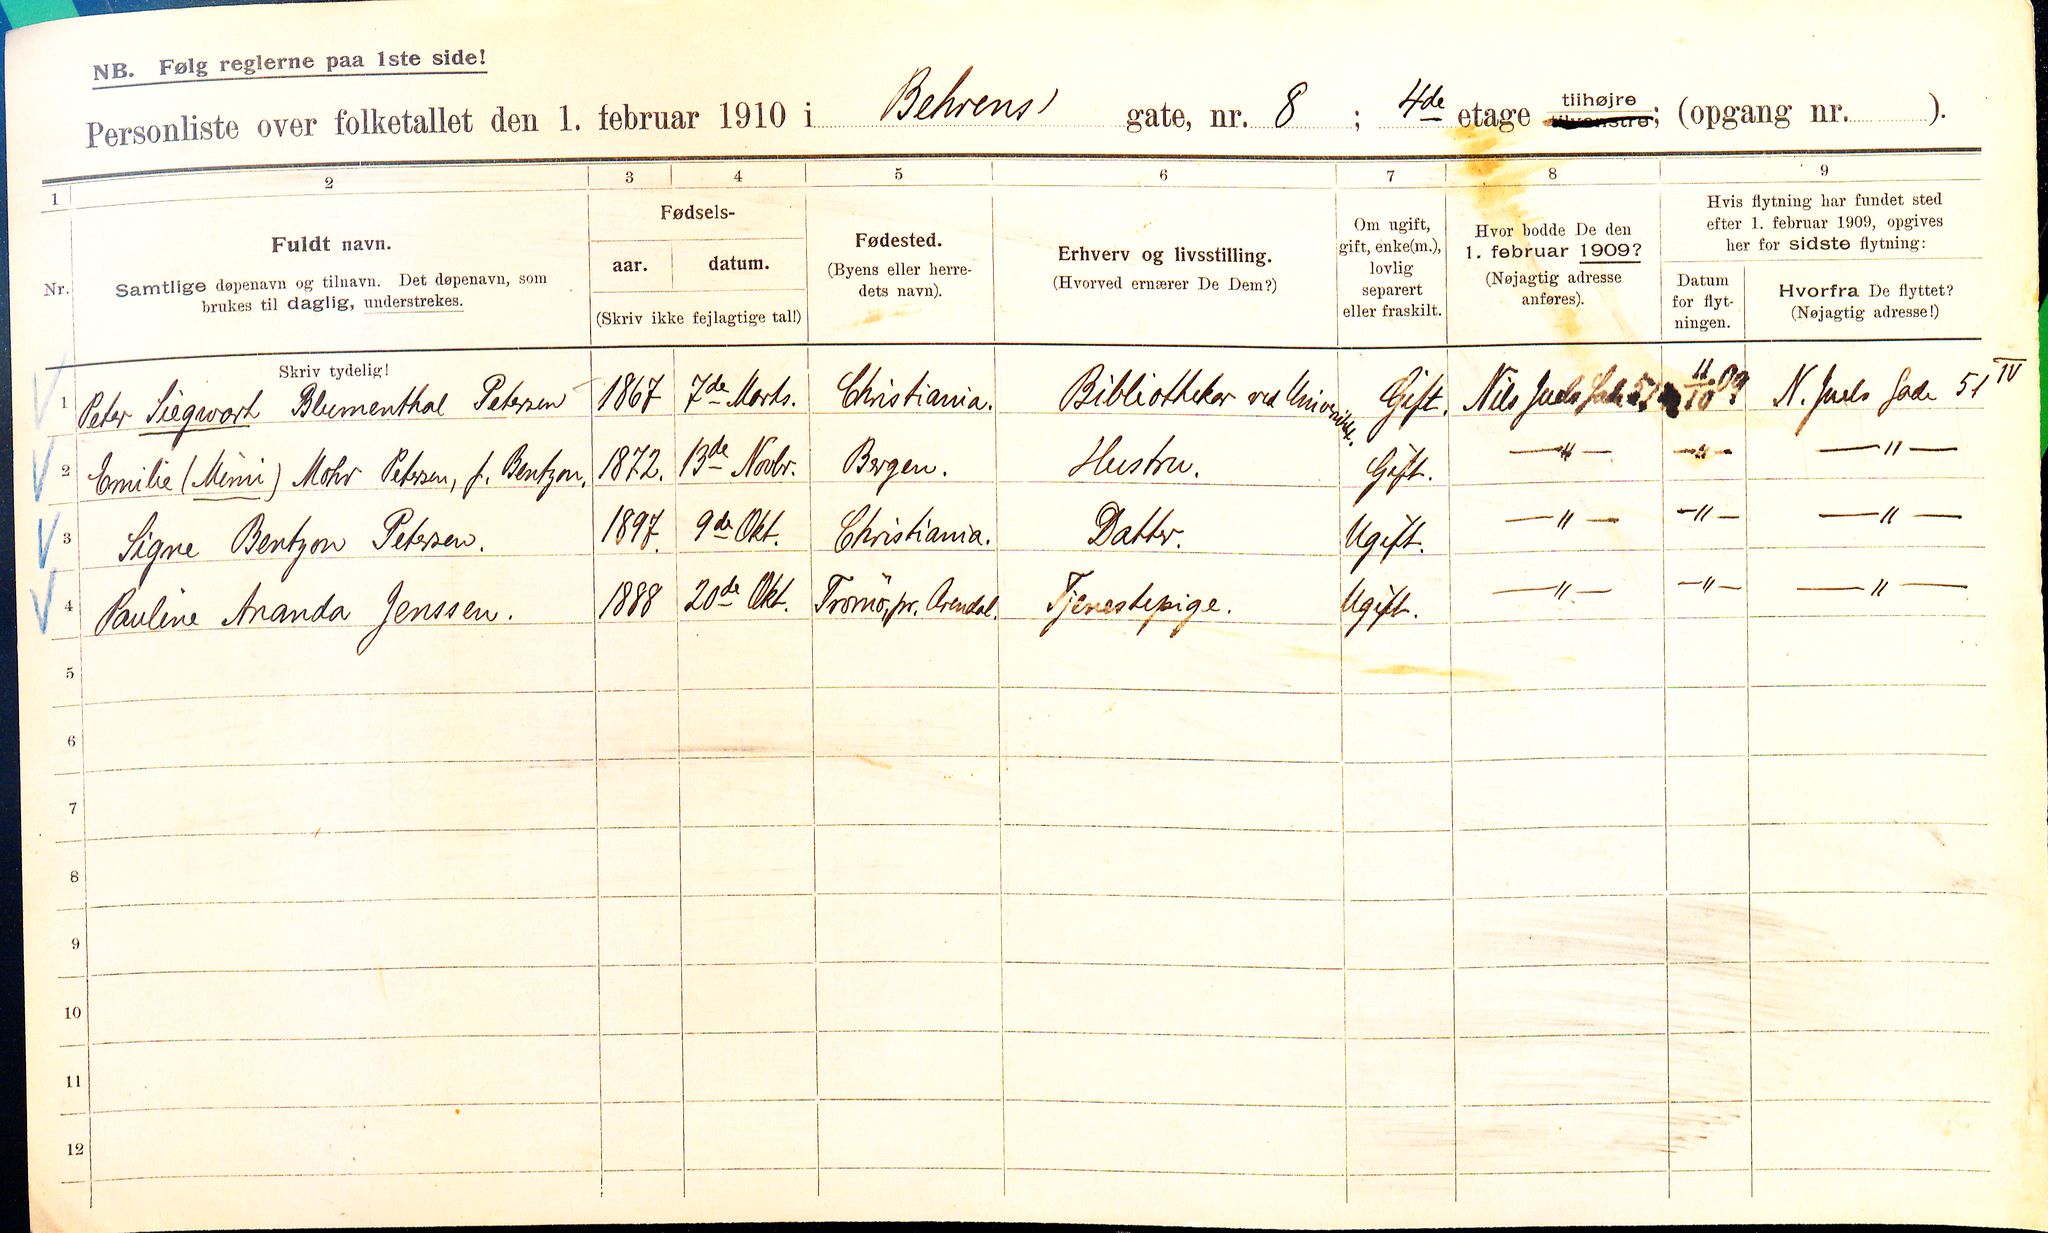 NB. Følg reglerne paa 1ste side!
Personliste over folketallet den 1. februar 1910 i Behrens' gate, nr. 8 ; 4de etage tilhøjre tilvenstre; (opgang nr. ).
1 2 3 4 5 6 7 8 9
Nr.
Fuldt navn.
Samtlige døpenavn og tilnavn. Det døpenavn, som
brukes til daglig, understrekes.
Skriv tydelig!
Fødsels-
aar. datum.
(Skriv ikke fejlagtige tal!)
Fødested.
(Byens eller herre-
dets navn).
Erhverv og livsstilling.
(Hvorved ernærer De Dem?)
Om ugift,
gift, enke(m.),
lovlig
separert
eller fraskilt.
Hvor bodde De den
1. februar 1909?
(Nøjagtig adresse
anføres).
Hvis flytning har fundet sted
efter 1. februar 1909, opgives
her for sidste flytning:
Datum
for flyt-
ningen.
Hvorfra De flyttet?
(Nøjagtig adresse!)
1 Peter Siegwart Blumenthal Petersen 1867 7de Marts. Christiania. Bibliothekar ved Gift. Nils Juels Gade 51 11/10 09 N. Juels Gade 51 IV
2 Emilie (Mimi) Mohr Petersen, f. Bentzon, 1872. 13de Novbr. Bergen. Hustru. Gift. — " — — " — — " —
3 Signe Bentzon Petersen. 1897. 9de Okt. Christiania. Datter. Ugift. — " — — " — — " —
4 Pauline Ananda Jenssen. 1888 20de Okt. Tromö, pr. Arendal. Tjenestepige. Ugift. — " — — " — — " —
5
6
7
8
9
10
11
12